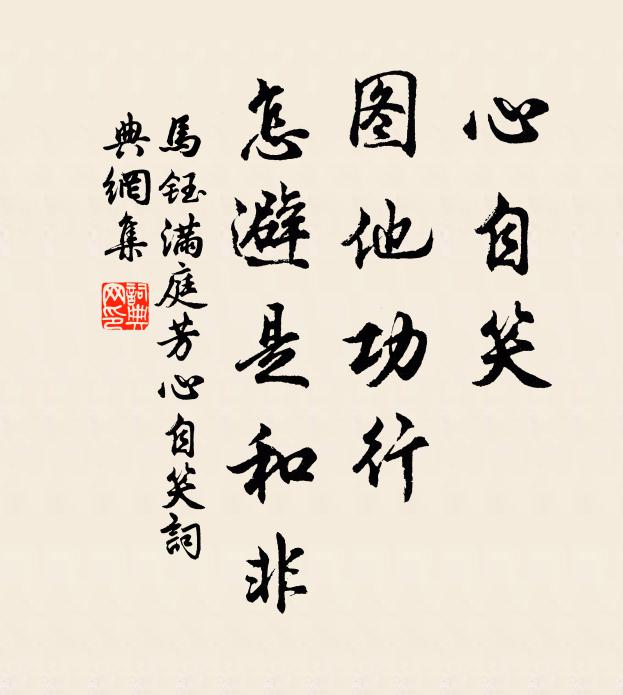 心自笑
图他功行
怎避是和非
馬鈺满庭芳心自笑詞
典網集
詞典
网印